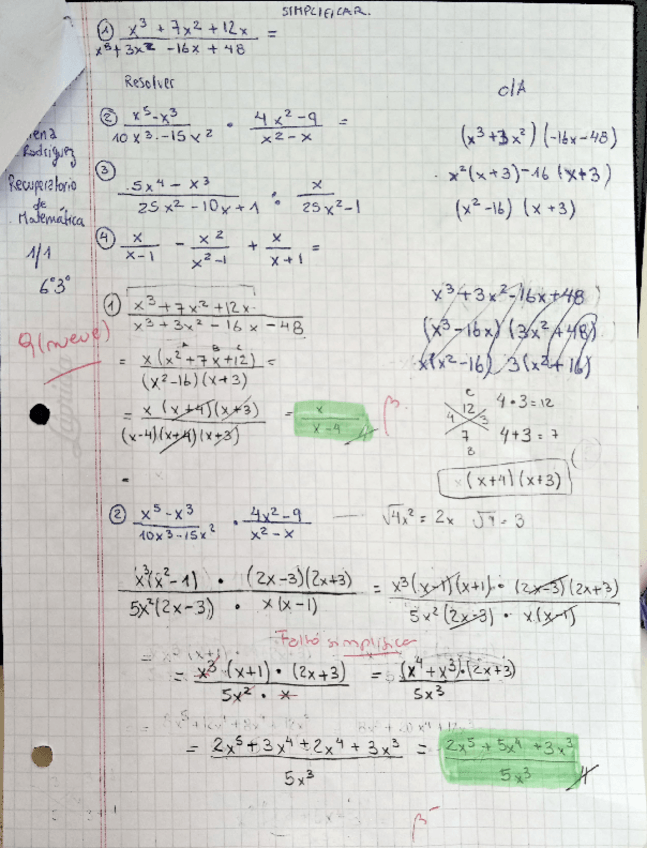 SIMPLIFICAR.
① x³ + 7x² + 12x / x⁵ + 3x² - 16x + 48 =
Resolver
② x⁵ - x³ / 10x³ - 15x² · 4x² - 9 / x² - x =
③ 5x⁴ - x³ / 25x² - 10x + 1 : x / 25x² - 1
④ x / x - 1 - x² / x² - 1 + x / x + 1 =
Rodriguez
Recuperatorio
de
Matemática
1/1
6°3°
9 (nueve)
Laprida
C/A
(x³ + 3x²) (-16x - 48)
x² (x + 3) - 16 (x + 3)
(x² - 16) (x + 3)
① x³ + 7x² + 12x / x³ + 3x² - 16x - 48
A B C
= x (x² + 7x + 12) / (x² - 16) (x + 3) =
= x (x + 4) (x + 3) / (x - 4) (x + 4) (x + 3) = x / x - 4
x³ + 3x² - 16x + 48
(x³ - 16x) (3x² + 48)
x (x² - 16) 3 (x² + 16)
C
12
4 3
7
B
4 · 3 = 12
4 + 3 = 7
(x + 4) (x + 3)
② x⁵ - x³ / 10x³ - 15x² · 4x² - 9 / x² - x — √4x² = 2x √9 = 3
x³ (x² - 1) · (2x - 3) (2x + 3) / 5x² (2x - 3) · x (x - 1) = x³ (x - 1) (x + 1) · (2x - 3) (2x + 3) / 5x² (2x - 3) · x (x - 1)
Faltó simplificar
= x³ (x + 1) · (2x + 3) / 5x² · x = (x⁴ + x³) · (2x + 3) / 5x³
= 2x⁵ + 3x⁴ + 2x⁴ + 3x³ / 5x³ = 2x⁵ + 5x⁴ + 3x³ / 5x³